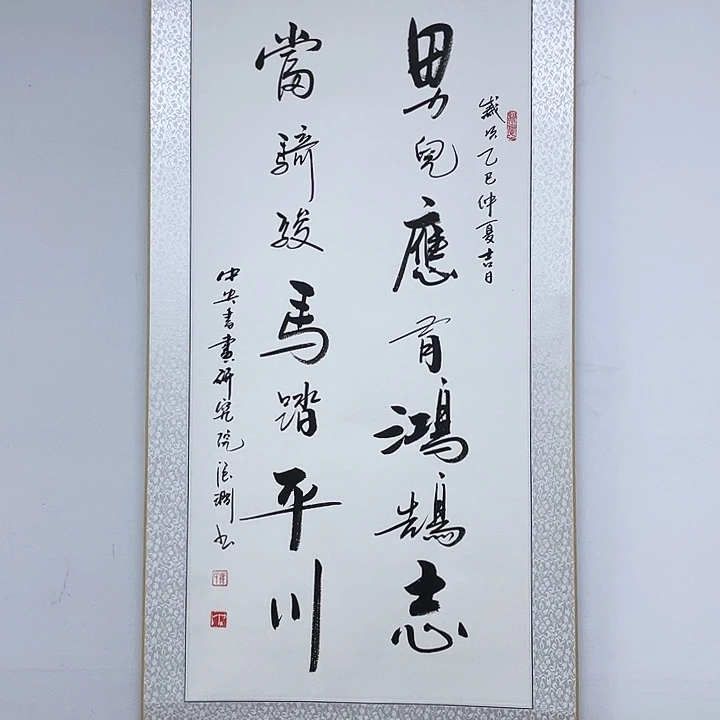 歲次乙巳仲夏吉日
男兒應有鴻鵠志
當騎駿馬踏平川
中央書畫研究院
书